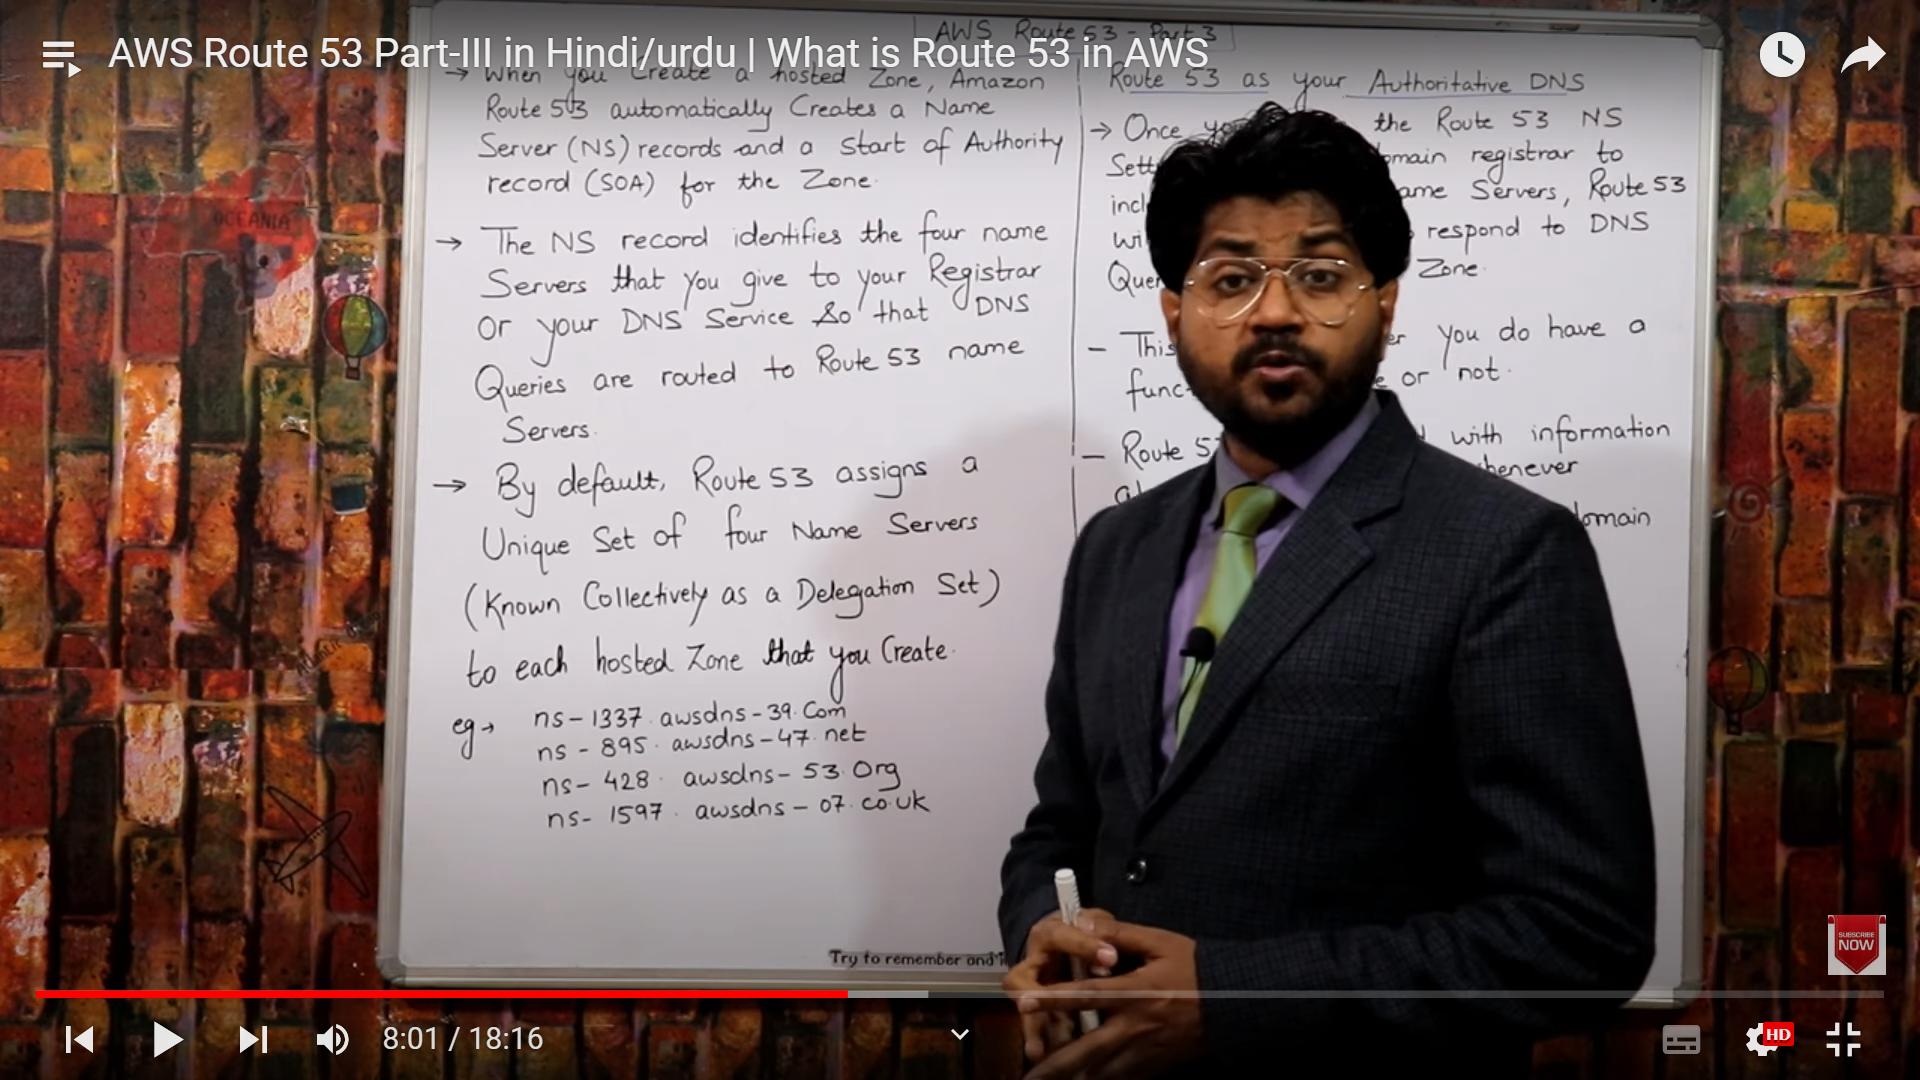 AWS Route 53 - Part 3
AWS Route 53 Part-III in Hindi/urdu | What is Route 53 in AWS
→ When you Create a hosted Zone, Amazon
Route 53 automatically Creates a Name
Server (NS) records and a Start of Authority
record (SOA) for the Zone.
→ The NS record identifies the four name
Servers that you give to your Registrar
Or your DNS Service So that DNS
Queries are routed to Route 53 name
Servers.
→ By default, Route 53 assigns a
Unique Set of four Name Servers
(Known Collectively as a Delegation Set)
to each hosted Zone that you Create.
eg → ns-1337.awsdns-39.Com
ns-895.awsdns-47.net
ns-428.awsdns-53.Org
ns-1597.awsdns-07.co.uk
Route 53 as your Authoritative DNS
→ Once the Route 53 NS
registrar to
Servers, Route 53
respond to DNS
Zone.
- This you do have a
or not.
- Route with information
OCEANIA
Try to remember and
SUBSCRIBE
NOW
8:01 / 18:16
HD